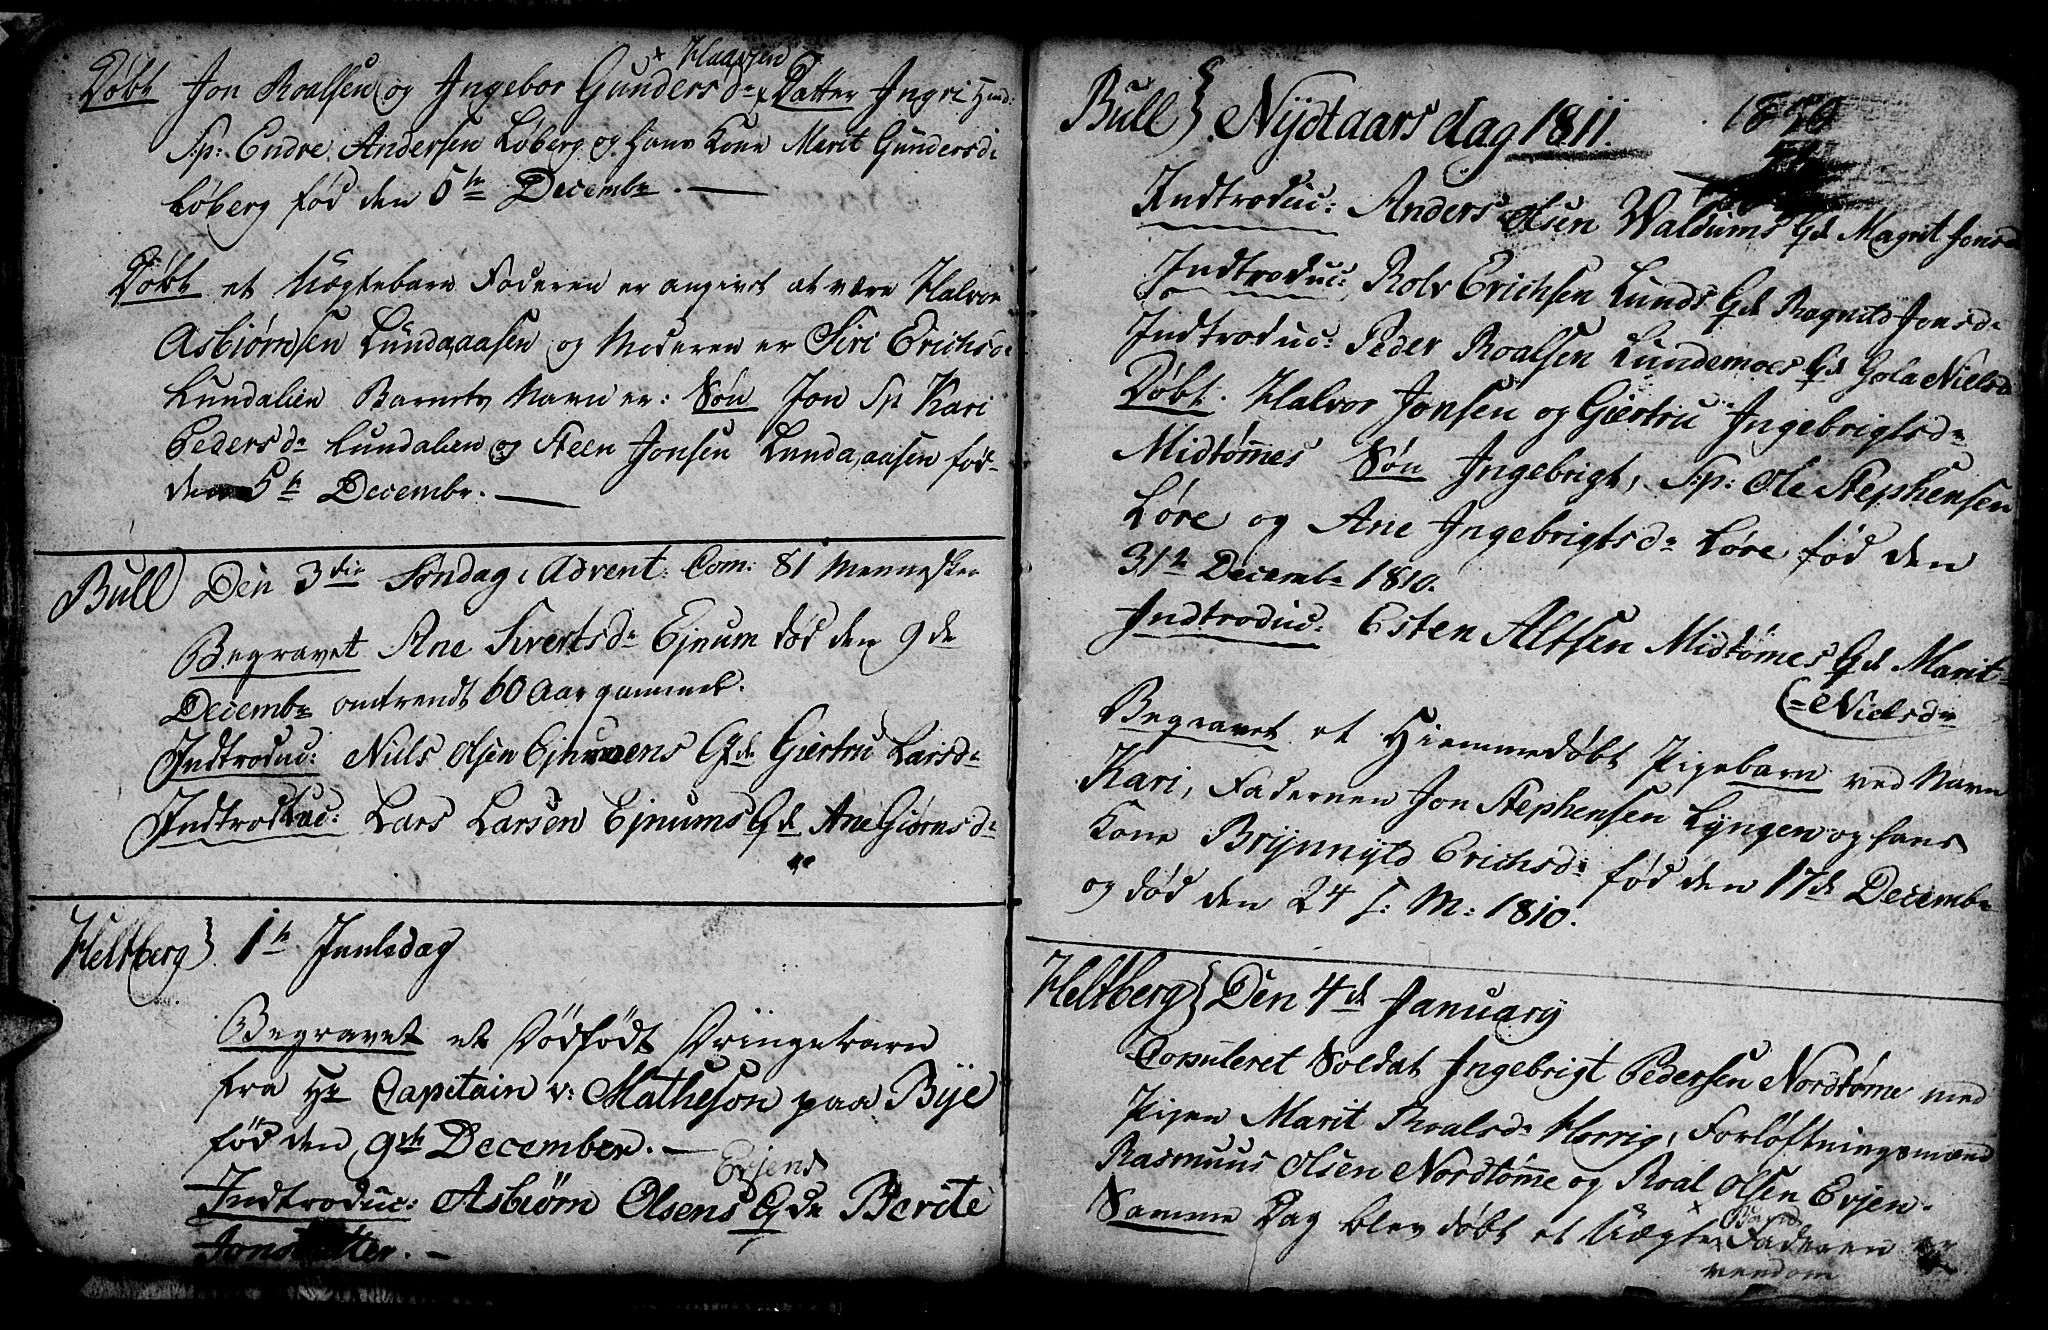 Haagjen
Døbt Jon Roalsen og Ingebor Gundersd. Datter Ingri
Sp: Endre Andersen Løberg og Hans Kone Marit Gundersd.
Løberg fød den 5te Decembr.
Døbt et Uægtebarn Faderen er angivet at være Halvor
Asbiørnsen Lundaaasen og Moderen er Siri Erichsd.
Lundalien Barnets Navn er: Søn Jon Sp Kari
Pedersdr Lundalien og Steen Jonsen Lundaaasen fød
den 5te Decembr.
Bull Den 3die Søndag i Advent: Com: 81 Mennesker
Begravet Ane Sivertsdr Ejnum død den 9de
Decembr omtrendt 60 Aar gammel.
Indtroduc: Niels Olsen Ejnumens Qde Giertru Larsdr
Indtroduc: Lars Larsen Ejnums Qde Ane Giørnsdr
Heltberg} 1te Juuledag
Begravet et Dødfødt Dringebarn
fra Hr Capitain v: Matheson paa Bye
fød den 9de December.
Evjens
Indtroduc: Asbiørn Olsens Qde Berite
Jonsdatter.
Bull} Nÿdtaarsdag 1811. 1810
Indtroduc: Anders Olsen Waldums Qde Magrit Jonsd
Indtroduc: Rolv Erichsen Lunds Qde Ragnild Jonsdr
Indtroduc: Peder Roalsen Lundemoes Qde Gola Nielsd
Døbt. Halvor Jonsen og Giertru Ingebrigtsdr
Midtømmes Søn Ingebrigt, Sp: Ole Stephensen
Løre og Ane Ingebrigtsdr Løre fød den
31te Decembr 1810.
Indtroduc: Esten Altsen Midtømes Qde Marit
=Nielsdr
Begravet et Hiemmedøbt Pigebarn ved Navn
Kari, Faderen Jon Stephensen Lyngen og hans
Kone Brÿnnyld Erichsdr fød den 17de Decembr
og død den 24 s: M: 1810.
Heltberg} Den 4de January
Copuleret Soldat Ingebrigt Pedersen Nordtømme med
Pigen Marit Roalsdr Herrig, Forløftningsmænd
Rasmuus Olsen Nordtømme og Roal Olsen Evjen.
Barn
Samme Dag blev døbt et Uægte Faderen er